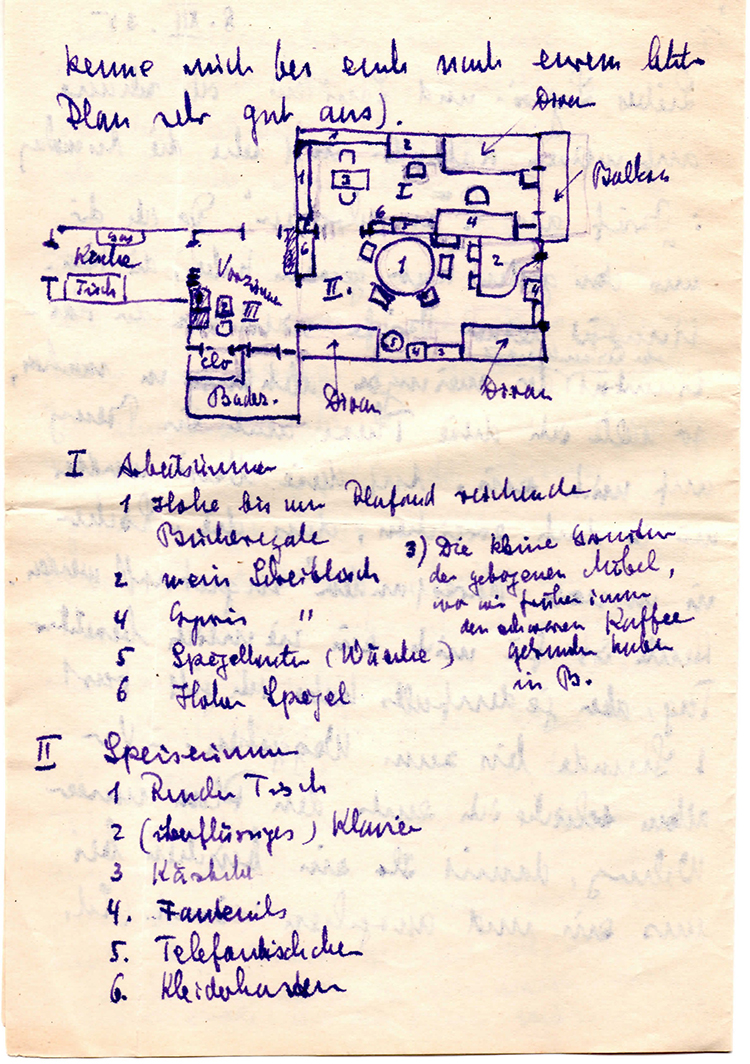 kenne mich bei euch nach eurem letzten
Plan sehr gut aus).
Divan
Balkon
1
2
3
I
1
4
5
6
6
Gas
Küche
Tisch
Vorzimmer
III
II.
1
2
4
5
4
3
Clo
Badez.
Divan
Divan
I Arbeitszimmer
1 Hohe bis zum Plafond reichende
Bücherregale
2 mein Schreibtisch
4 "
5 Spiegelkasten (Wäsche)
6 Hoher Spiegel
3) Die kleine Garnitur
der gebogenen Möbel,
wo wir früher immer
den schwarzen Kaffee
getrunken haben
in B.
II Speisezimmer
1 Runder Tisch
2 (überflüssiges) Klavier
3 Kästchen
4. Fauteuils
5. Telefontischchen
6. Kleiderkasten